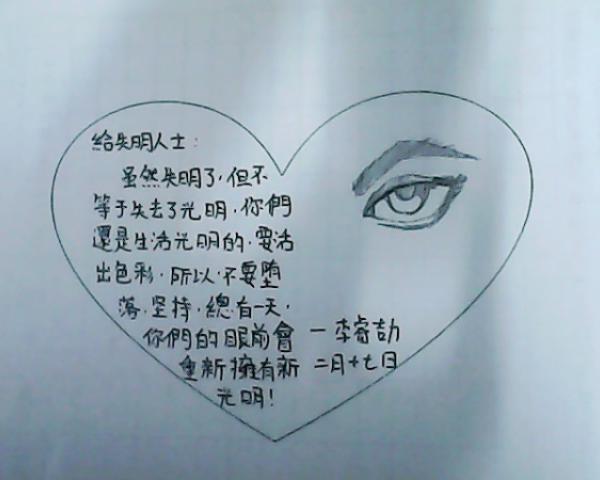 給失明人士：
虽然失明了，但不
等于失去了光明，你們
還是生活光明的，要活
出色彩，所以，不要墮
落，坚持，總有一天，
你們的眼前會
重新擁有新
光明！
一李睿劼
二月十七日